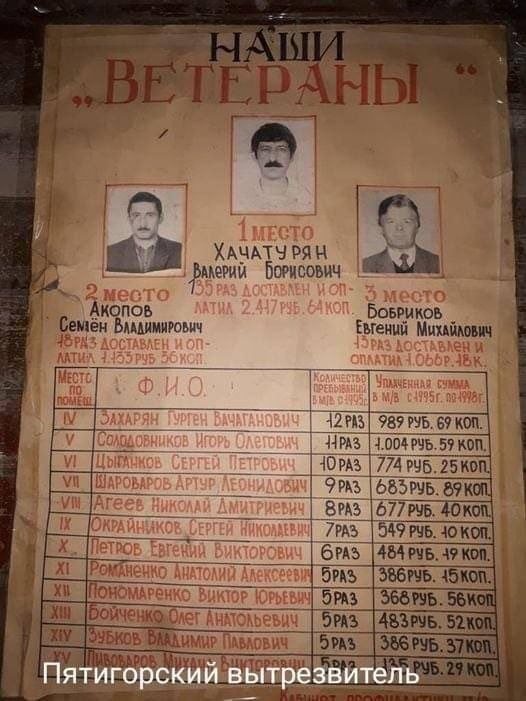 НАШИ
„ВЕТЕРАНЫ“
1 место
Хачатурян
Валерий Борисович
135 раз доставлен и оплатил 2.417 руб. 64 коп.
2 место
Акопов
Семён Владимирович
18 раз доставлен и оплатил 1.133 руб 56 коп.
3 место
Бобриков
Евгений Михайлович
13 раз доставлен и оплатил 1.066 р. 18 к.
Место по помещ. Ф.И.О. Количество пребываний в м/в с 1995г. Уплаченная сумма в м/в с 1995г. по 1998г.
IV Захарян Гурген Вачаганович 12 раз 989 руб. 69 коп.
V Солодовников Игорь Олегович 11 раз 1.004 руб. 59 коп.
VI Цыганков Сергей Петрович 10 раз 774 руб. 25 коп.
VII Шароваров Артур Леонидович 9 раз 683 руб. 89 коп.
VIII Агеев Николай Дмитриевич 8 раз 677 руб. 40 коп.
IX Окрайников Сергей Николаевич 7 раз 549 руб. 10 коп.
X Петров Евгений Викторович 6 раз 484 руб. 19 коп.
XI Романенко Анатолий Алексеевич 5 раз 386 руб. 15 коп.
XII Пономаренко Виктор Юрьевич 5 раз 368 руб. 56 коп.
XIII Бойченко Олег Анатольевич 5 раз 483 руб. 52 коп.
XIV Зубков Владимир Павлович 5 раз 386 руб. 37 коп.
XV Пивоваров Михаил Викторович 5 раз 135 руб. 29 коп.
Пятигорский вытрезвитель
Кабинет профилактики